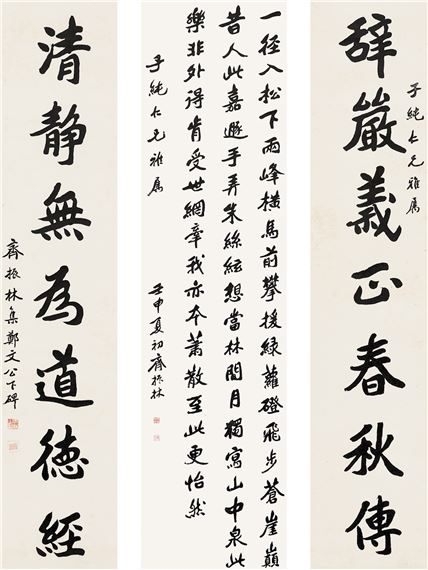 子純仁兄雅屬
辭嚴義正春秋傳
一徑入松下兩峰橫馬前攀援綠蘿磴飛步蒼崖巔
昔人此嘉遯手弄朱絲絃想當林間月獨寫山中泉此
樂非外得肯受世網牽我亦本蕭散至此更怡然
子純仁兄雅屬 壬申夏初齊振林
清靜無為道德經
齊振林集鄭文公下碑